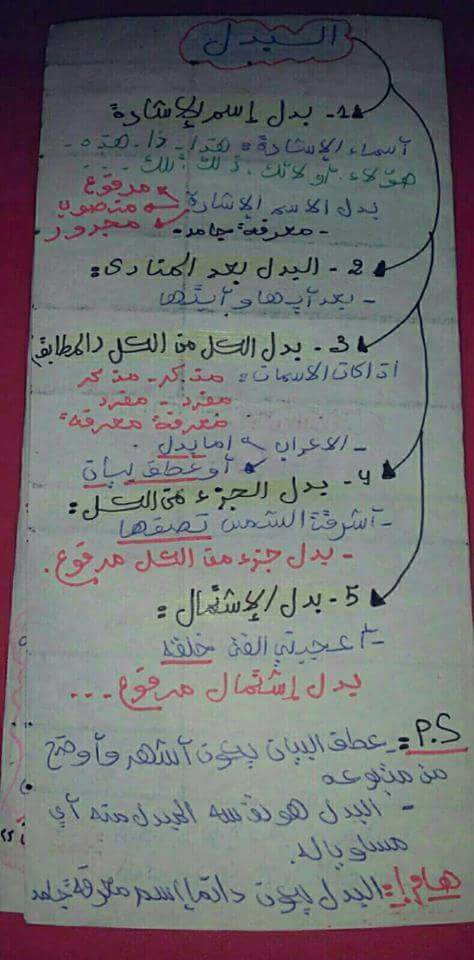 البدل
1- بدل إسم الإشارة
أسماء الإشارة = هذا - ذا - هذه -
هؤلاء . أولائك . ذلك . تلك ....
بدل الاسم الإشارة مرفوع
منصوب
مجرور
- معرفة جامد -
2- البدل بعد المنادى :
- بعد أيها و أيتها
3- بدل الكل من الكل (المطابق)
اذا كان الاسمان : مذكر - مذكر
مفرد - مفرد
معرفة معرفة
- الاعراب اما بدل
أو عطف بيان
4- بدل الجزء من الكل :
- أشرقت الشمس نصفها
- بدل جزء من الكل مرفوع .
5- بدل الإشتمال :
- أعجبني الفتى خلقه
بدل إشتمال مرفوع ...
P.S = - عطف البيان يكون أشهر و أوضح
من متبوعه
- البدل هو نفسه المبدل منه أي
مساو له.
هام!: البدل يكون دائما إسم معرفة جامد